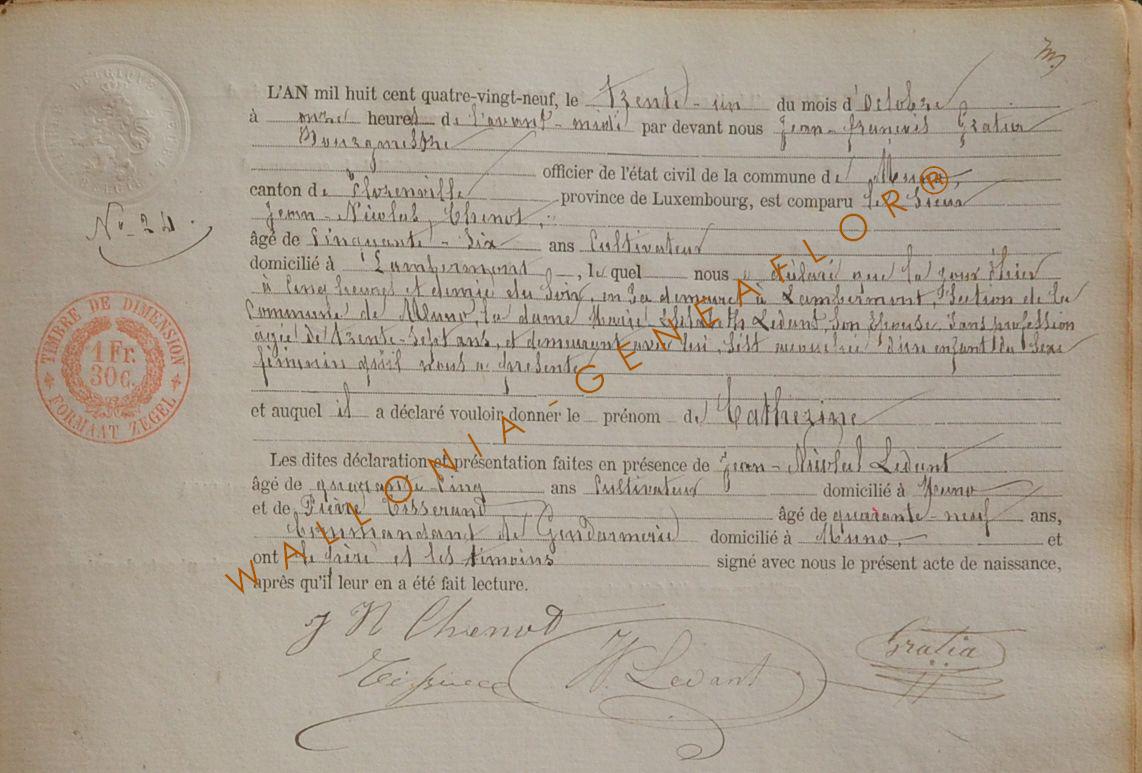 L'AN mil huit cent quatre-vingt-neuf, le trente-un du mois d'Octobre
à onze heures de l'avant-midi par devant nous Jean-françois Gratia
Bourgmestre
officier de l'état civil de la commune de Muno,
canton de Florenville province de Luxembourg, est comparu le sieur
Jean-Nicolas Chenot,
No. 24.
âgé de cinquante-six ans Cultivateur
domicilié à Lambermont, lequel nous a déclaré que le jour d'hier
à cinq heures et demie du soir, en sa demeure à Lambermont, section de la
Commune de Muno, la dame Marie Elisabeth Ledant, son épouse, sans profession
âgée de trente-sept ans, et demeurant avec lui, s'est accouchée d'un enfant du sexe
féminin qu'il nous a présenté
et auquel il a déclaré vouloir donner le prénom de Catherine
Les dites déclaration et présentation faites en présence de Jean-Nicolas Ledant
âgé de quarante-cinq ans Cultivateur domicilié à Muno
et de Pierre Tisserand âgé de quarante-neuf ans,
Commandant de Gendarmerie domicilié à Muno, et
ont le père et les témoins signé avec nous le présent acte de naissance,
après qu'il leur en a été fait lecture.
J N Chenot
N. Ledant
Gratia
TIMBRE DE DIMENSION
1 Fr.
30 C.
FORMAAT ZEGEL
WALLONIA-GENEAFLOR®